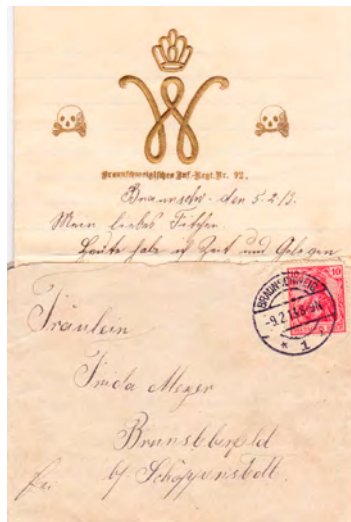 W
Braunschweigisches Inf.-Regt. Nr. 92.
Braunschw. den 5.2.13.
Mein liebes
Heute habe ich Zeit und Gelegen
10
BRAUNSCHWEIG
-9.2.13.8-9N.
* 1
Fräulein
Frida Meyer
b/ Schöppenstedt.